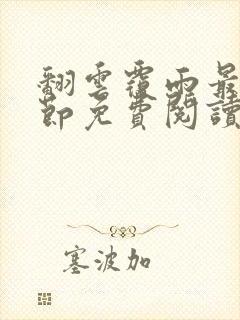 翻雲覆雨最
節免費閱讀
塞波加